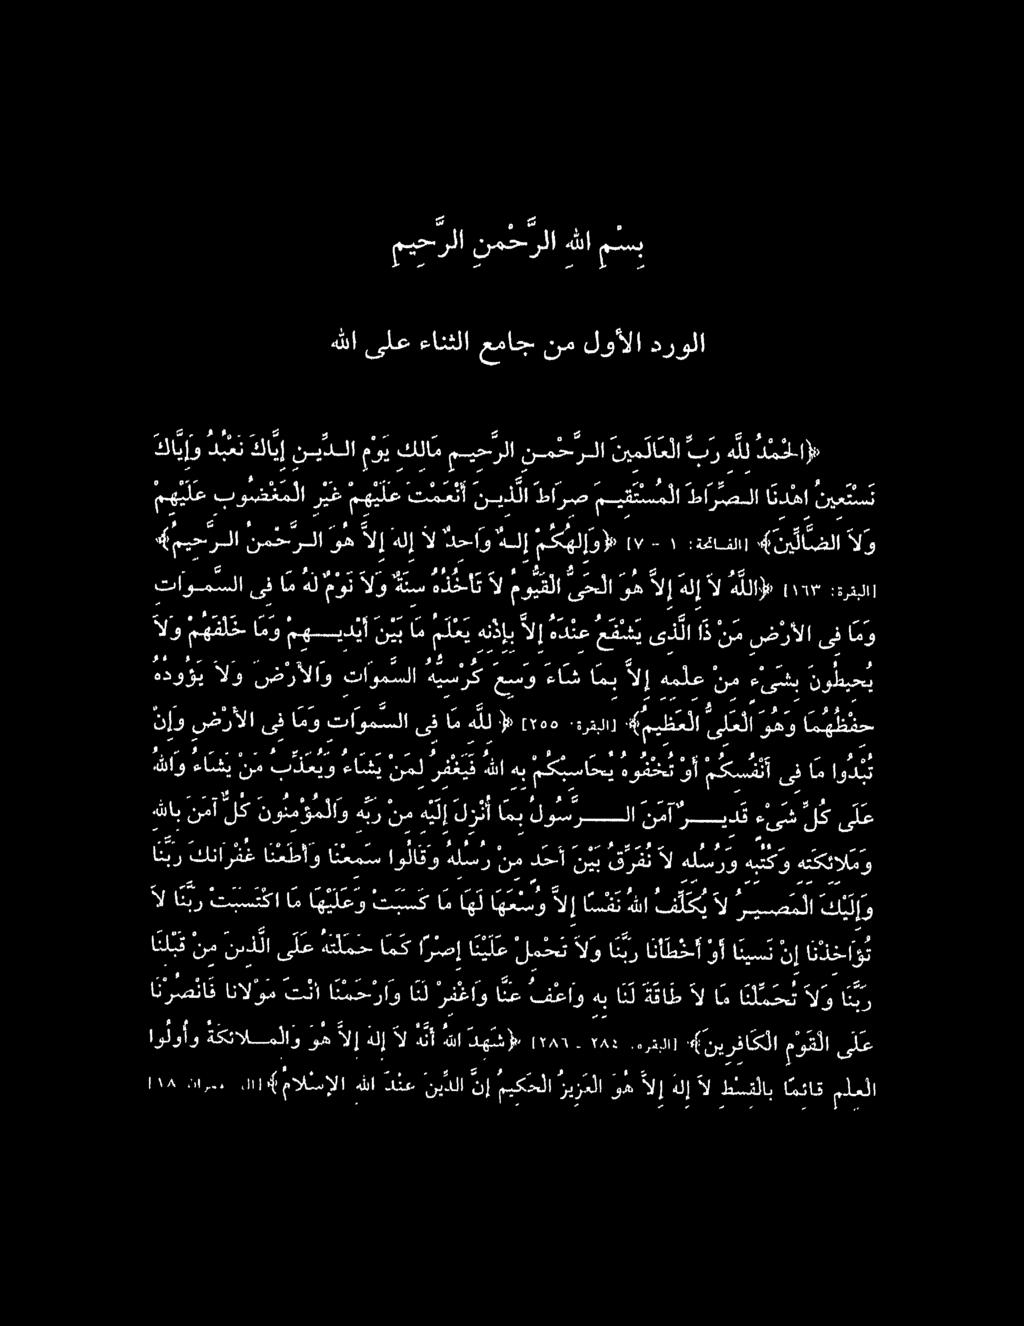 بِسْمِ اللهِ الرَّحْمنِ الرَّحِيمِ
الورد الأول من جامع الثناء على الله
﴿الْحَمْدُ للَّهِ رَبِّ الْعَالَمِينَ الـرَّحْمـنِ الرَّحِيـمِ مَالِكِ يَوْمِ الـدِّيـنِ إِيَّاكَ نَعْبُدُ وَإِيَّاكَ
نَسْتَعِينُ اهْدِنَا الـصِّرَاطَ الْمُسْتَقِيـمَ صِرَاطَ الَّذِيـنَ أَنْعَمْتَ عَلَيْهِمْ غَيْرِ الْمَغْضُوبِ عَلَيْهِمْ
وَلاَ الضَّالِّينَ﴾ [الفـاتحة: ١ - ٧] ﴿وَإِلهُكُمْ إِلـهٌ وَاحِدٌ لاَ إِلهَ إِلاَّ هُوَ الـرَّحْمنُ الـرَّحِيمُ﴾
[البقرة: ١٦٣] ﴿اللَّهُ لاَ إِلهَ إِلاَّ هُوَ الْحَىُّ الْقَيُّومُ لاَ تَأْخُذُهُ سِنَةٌ وَلاَ نَوْمٌ لَهُ مَا فِى السَّمـوَاتِ
وَمَا فِى الأَرْضِ مَنْ ذَا الَّذِى يَشْفَعُ عِنْدَهُ إِلاَّ بِإِذْنِهِ يَعْلَمُ مَا بَيْنَ أَيْدِيـــهِمْ وَمَا خَلْفَهُمْ وَلاَ
يُحِيطُونَ بِشَىْءٍ مِنْ عِلْمِهِ إِلاَّ بِمَا شَاءَ وَسِعَ كُرْسِيُّهُ السَّموَاتِ وَالأَرْضَ وَلاَ يَؤُودُهُ
حِفْظُهُمَا وَهُوَ الْعَلِىُّ الْعَظِيمُ﴾ [البقرة: ٢٥٥] ﴿ للَّهِ مَا فِى السَّموَاتِ وَمَا فِى الأَرْضِ وَإِنْ
تُبْدُوا مَا فِى أَنْفُسِكُمْ أَوْ تُخْفُوهُ يُحَاسِبْكُمْ بِهِ اللهُ فَيَغْفِرُ لِمَنْ يَشَاءُ وَيُعَذِّبُ مَنْ يَشَاءُ وَاللهُ
عَلَى كُلِّ شَىْءٍ قَدِيــرٌ آمَنَ الـــرَّسُولُ بِمَا أُنْزِلَ إِلَيْهِ مِنْ رَبِّهِ وَالْمُؤْمِنُونَ كُلٌّ آمَنَ بِاللهِ
وَمَلاَئِكَتِهِ وَكُتُبِهِ وَرُسُلِهِ لاَ نُفَرِّقُ بَيْنَ أَحَدٍ مِنْ رُسُلِهِ وَقَالُوا سَمِعْنَا وَأَطَعْنَا غُفْرَانَكَ رَبَّنَا
وَإِلَيْكَ الْمَصِـيـرُ لاَ يُكَلِّفُ اللهُ نَفْسًا إِلاَّ وُسْعَهَا لَهَا مَا كَسَبَتْ وَعَلَيْهَا مَا اكْتَسَبَتْ رَبَّنَا لاَ
تُؤَاخِذْنَا إِنْ نَسِينَا أَوْ أَخْطَأْنَا رَبَّنَا وَلاَ تَحْمِلْ عَلَيْنَا إِصْرًا كَمَا حَمَلْتَهُ عَلَى الَّذِينَ مِنْ قَبْلِنَا
رَبَّنَا وَلاَ تُحَمِّلْنَا مَا لاَ طَاقَةَ لَنَا بِهِ وَاعْفُ عَنَّا وَاغْفِرْ لَنَا وَارْحَمْنَا أَنْتَ مَوْلاَنَا فَانْصُرْنَا
عَلَى الْقَوْمِ الْكَافِرِينَ﴾ [البقرة: ٢٨٤ - ٢٨٦] ﴿شَهِدَ اللهُ أَنَّهُ لاَ إِلهَ إِلاَّ هُوَ وَالْمـــلاَئِكَةُ وَأُولُوا
الْعِلْمِ قَائِمًا بِالْقِسْطِ لاَ إِلهَ إِلاَّ هُوَ الْعَزِيزُ الْحَكِيمُ إِنَّ الدِّينَ عِنْدَ اللهِ الإِسْلاَمُ﴾ [آل عمران ١٨]